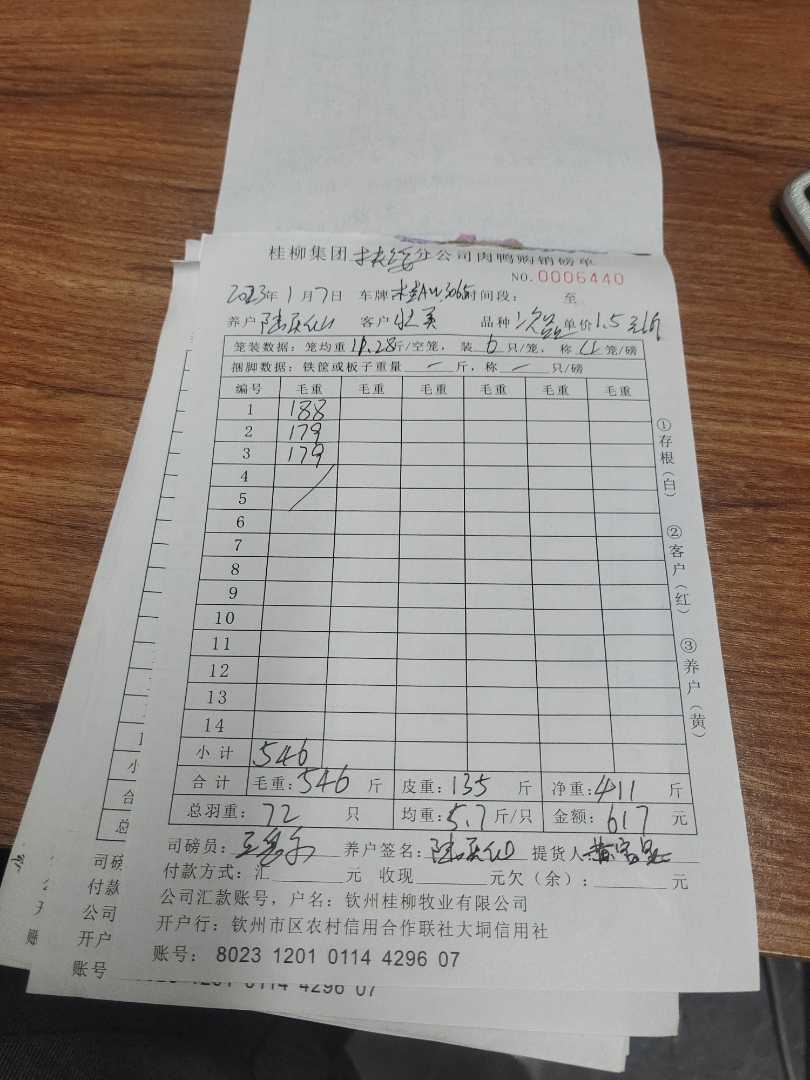 桂柳集团扶绥分公司肉鸭购销磅单
NO.0006440
2023年1月7日 车牌 桂AW3065 时间段： 至
养户 客户 品种 次品 单价 1.5元/斤
笼装数据：笼均重 11.28斤/空笼，装 6 只/笼，称 4 笼/磅
捆脚数据：铁筐或板子重量 — 斤，称 — 只/磅
编号 毛重 毛重 毛重 毛重 毛重 毛重
1 188
2 179
3 179
4
5
6
7
8
9
10
11
12
13
14
小计 546
合计 毛重：546 斤 皮重：135 斤 净重：411 斤
总羽重：72 只 均重：5.7 斤/只 金额：617 元
司磅员： 养户签名： 提货人
付款方式：汇 元 收现 元欠（余）： 元
公司汇款账号，户名：钦州桂柳牧业有限公司
开户行：钦州市区农村信用合作联社大垌信用社
账号： 8023 1201 0114 4296 07
①存根（白）
②客户（红）
③养户（黄）
小
合
总
司磅
付款
公司
开户
账号
0114 4296 07